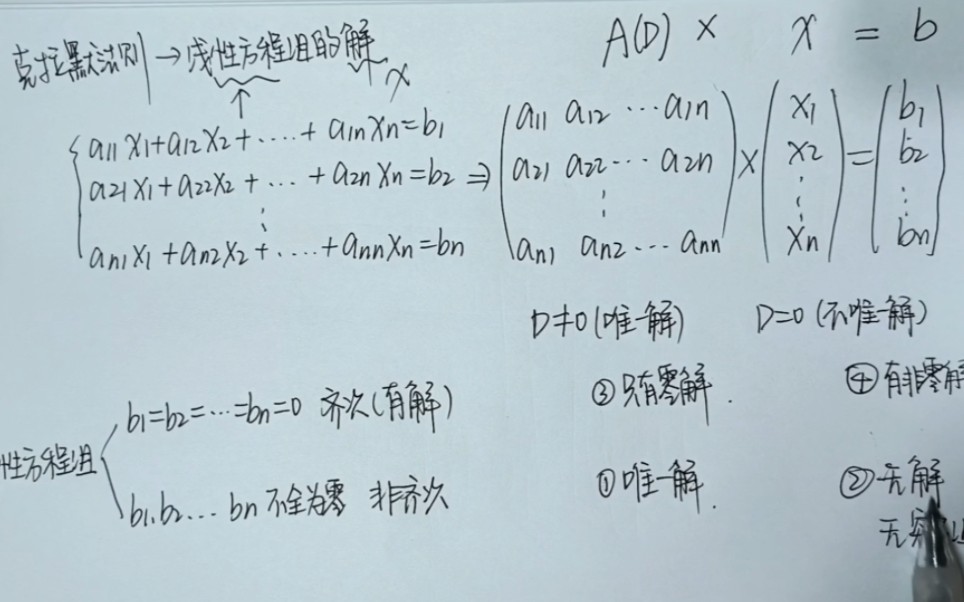 克拉默法则→线性方程组的解 x
A(D) × x = b
↑
{ a11x1+a12x2+....+a1nxn=b1
a21x1+a22x2+...+a2nxn=b2 ⇒
⋮
an1x1+an2x2+....+annxn=bn
(a11 a12 ...a1n
a21 a22... a2n
⋮
an1 an2... ann) × (x1
x2
⋮
xn) = (b1
b2
⋮
bn)
D≠0(唯一解) D=0(不唯一解)
性方程组
b1=b2=...=bn=0 齐次(有解) ③只有零解. ④有非零解
b1.b2... bn 不全为零 非齐次 ①唯一解. ②无解
无穷